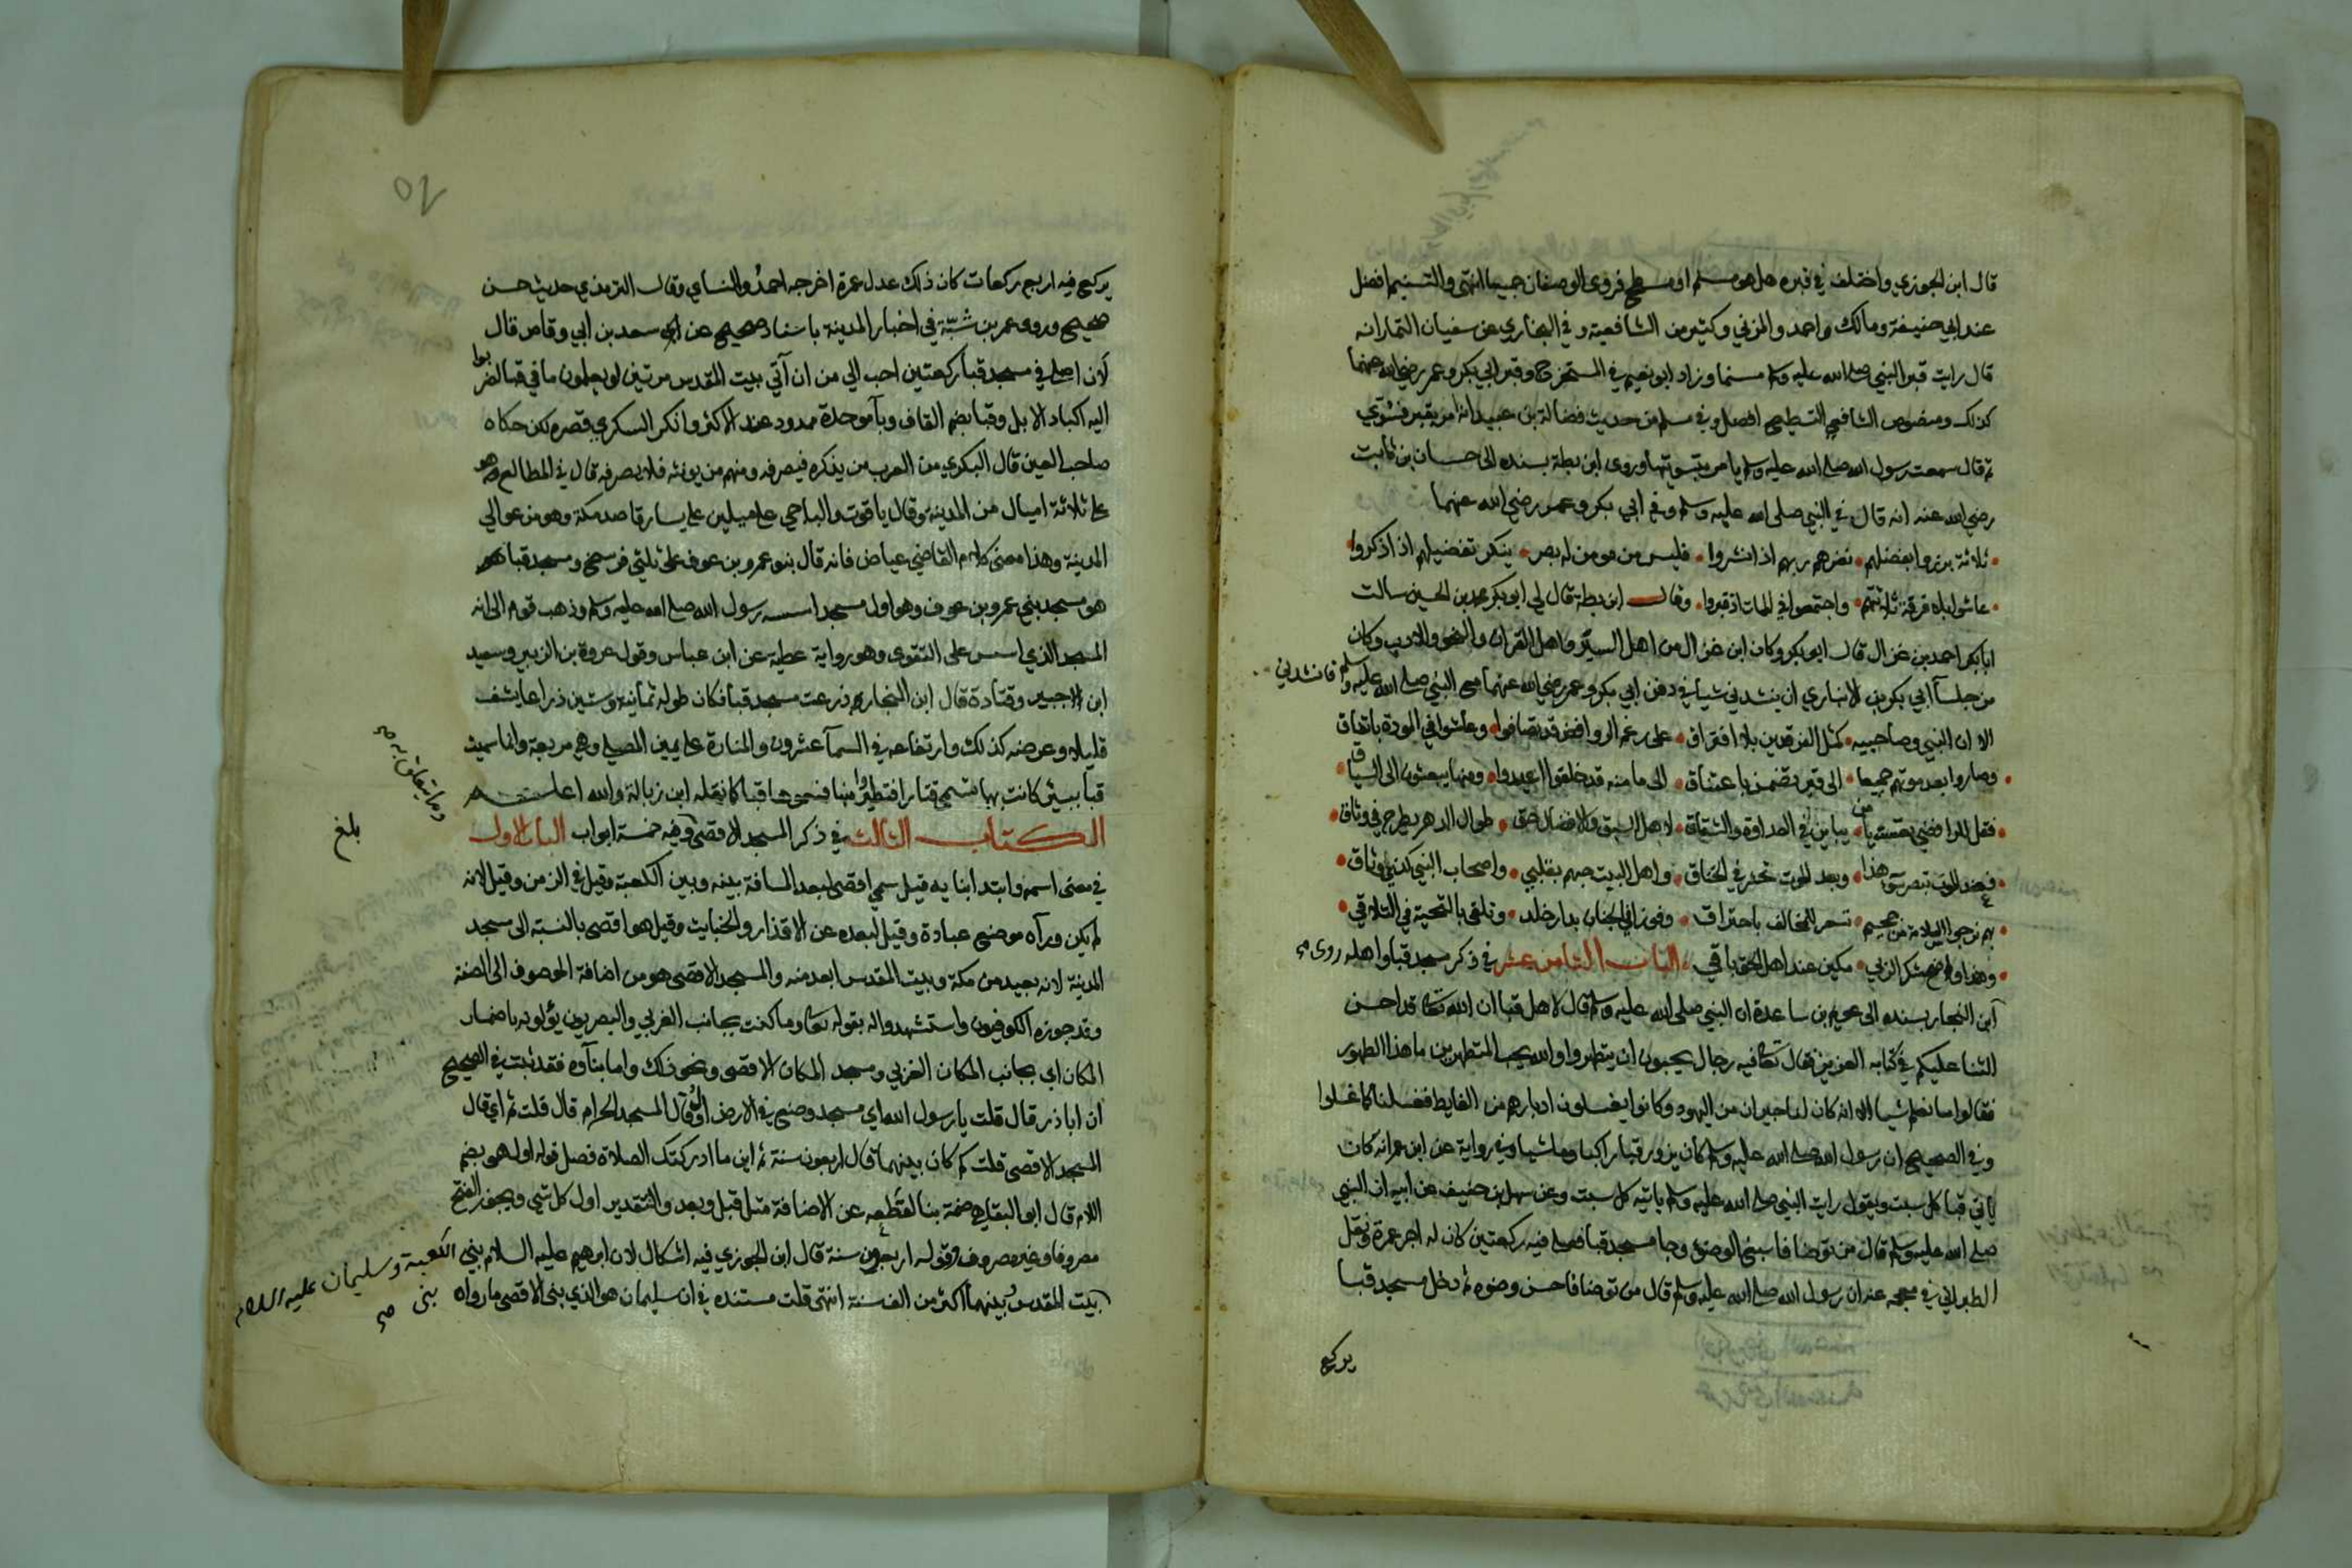 قال ابن الجوزي واختلف في قبره هل هو مسنم او مسطح فروى الوصفان جميعا انتهى والتسنيم افضل
عند ابي حنيفة ومالك واحمد والمزني وكثير من الشافعية وفي البخاري عن سفيان التمار انه
قال رايت قبر النبي صلى الله عليه وسلم مسنما وزاد ابو نعيم في المستخرج وقبر ابي بكر وعمر رضي الله عنهما
كذلك ومنصوص الشافعي التسطيح افضل وفي مسلم من حديث فضالة بن عبيد انه امر بقبر فسوي
ثم قال سمعت رسول الله صلى الله عليه وسلم يامر بتسويتها وروى ابن بطة بسنده الى حسان بن ثابت
رضي الله عنه انه قال في النبي صلى الله عليه وسلم وفي ابي بكر وعمر رضي الله عنهما
ثلاثة برزوا بفضلهم نضرهم ربهم اذا نشروا فليس من مومن له بصر ينكر تفضيلهم اذا ذكروا
عاشوا بلا فرقة ثلاثتهم واجتمعوا في الممات اذ قبروا وقال ابن بطة قال لي ابو بكر محمد بن الحسين سالت
ابا بكر احمد بن غزال قال ابو بكر وكان ابن غزال من اهل الستر واهل القران والنحو والادب وكان
من جلسآ ابي بكر بن الانباري ان ينشدني شيا في دفن ابي بكر وعمر رضي الله عنهما مع النبي صلى الله عليه وسلم فانشدني
الا ان النبي وصاحبيه كمثل الفرقدين بلا افتراق على رغم الروافض قد تصافوا وعاشوا في المودة باتفاق
وصاروا بعد موتهم جميعا الى قبر تضمن باعتناق الى ما منه قد خلقوا اعيدوا ومنها يبعثون الى السياق
فقل للرافضي تعست يا من يباين في العداوة والشقاق لاهل السبق والافضال حتى طوال الدهر يطرح في وثاق
فعند الموت تبصر سوء هذا وبعد الموت تحدر في الخناق واهل البيت حبهم بقلبي واصحاب النبي
بهم نرجو السلامة من جحيم تسعر للمخالف باحتراق وفوزا في الجنان بدار خلد وتلقى بالتحية في التلاقي
وهذا واضح شكر الربي مكين عند اهل الحق باقي الباب الثامن عشر في ذكر مسجد قبا واهله روى
ابن النجار بسنده الى عويم بن ساعدة ان النبي صلى الله عليه وسلم قال لاهل قبا ان الله تعالى قد احسن
الثنا عليكم في كتابه العزيز فقال تعالى فيه رجال يحبون ان يتطهروا والله يحب المتطهرين ما هذا الطهور
فقالوا ما نعلم شيا الا انه كان لنا جيران من اليهود وكانوا يغسلون ادبارهم من الغايط فغسلنا كما غسلوا
وفي الصحيح ان رسول الله صلى الله عليه وسلم كان يزور قبا راكبا وماشيا وفي رواية عن ابن عمر انه كان
ياتي قبا كل سبت ويقول رايت النبي صلى الله عليه وسلم ياتيه كل سبت وعن سهل بن حنيف عن ابيه ان النبي
صلى الله عليه وسلم قال من توضا فاسبغ الوضوء وجا مسجد قبا فصلى فيه ركعتين كان له اجر عمرة ونقل
الطبراني في معجمه عنه ان رسول الله صلى الله عليه وسلم قال من توضا فاحسن وضوه ثم دخل مسجد قبا
يركع
يركع فيه اربع ركعات كان ذلك عدل عمرة اخرجه احمد والنساي وقال الترمذي حديث حسن
صحيح وروى عمر بن شبّة في اخبار المدينة باسناد صحيح عن سعد بن ابي وقاص قال
لان اصلي في مسجد قبا ركعتين احب الي من ان آتي بيت المقدس مرتين لو يعلمون ما في قبا لضربوا
اليه اكباد الابل وقبا بضم القاف وبآ موحدة ممدود عند الاكثر وانكر السكري قصره لكن حكاه
صاحب العين قال البكري من العرب من يذكره فيصرفه ومنهم من يونثه فلا يصرفه قال في المطالع وهو
على ثلاثة اميال من المدينة وقال ياقوت والباجي على ميلين على يسار قاصد مكة وهو من عوالي
المدينة وهذا معنى كلام القاضي عياض فانه قال بنو عمرو بن عوف على ثلثي فرسخ ومسجد قبا
هو مسجد بني عمرو بن عوف وهو اول مسجد اسسه رسول الله صلى الله عليه وسلم وذهب قوم الى انه
المسجد الذي اسس على التقوى وهو رواية عطية عن ابن عباس وقول عروة بن الزبير وسعيد
ابن جبير وقتادة قال ابن النجار ذرعت مسجد قبا فكان طوله ثمانية وستين ذراعا يشف
قليلا وعرضه كذلك وارتفاعه في السمآ عشرون والمنارة على يمين المصلي وهي مربعة وانما سميت
قبآ ببير كانت بها تسمى قتار افتطيروا منها فسموها قبا كما نقله ابن زبالة والله اعلم
الكتاب الثالث في ذكر المسجد الاقصى وفيه خمسة ابواب الباب الاول
وما يتعلق به صح
بلغ
في معنى اسمه وابتدا بنايه قيل سمي اقصى لبعد المسافة بينه وبين الكعبة وقيل في الزمن وقيل لانه
لم يكن ورآه موضع عبادة وقيل لبعده عن الاقذار والخبايث وقيل هو اقصى بالنسبة الى مسجد
المدينة لانه بعيد من مكة وبيت المقدس ابعد منه والمسجد الاقصى هو من اضافة الموصوف الى الصفة
وقد جوزه الكوفيون واستشهدوا له بقوله تعالى وما كنت بجانب الغربي والبصريون يؤلونه باضمار
المكان اي بجانب المكان الغربي ومسجد المكان الاقصى ونحو ذلك واما بنآوه فقد ثبت في الصحيح
ان ابا ذر قال قلت يا رسول الله اي مسجد وضع في الارض اول قال المسجد الحرام قال قلت ثم اي قال
المسجد الاقصى قلت كم كان بينهما قال اربعون سنة ثم اين ما ادركتك الصلاة فصل قوله اول هو بضم
اللام قال ابو البقا هي ضمة بنا لقطعه عن الاضافة مثل قبل وبعد والتقدير اول كل شي ويجوز الفتح
مصروفا وغير مصروف وقوله اربعون سنة قال ابن الجوزي فيه اشكال لان ابرهيم عليه السلام بنى الكعبة وسليمان عليه السلام
بنى صح
بيت المقدس وبينهما اكثر من الف سنة انتهى قلت مستنده في ان سليمان هو الذي بنى الاقصى ما رواه